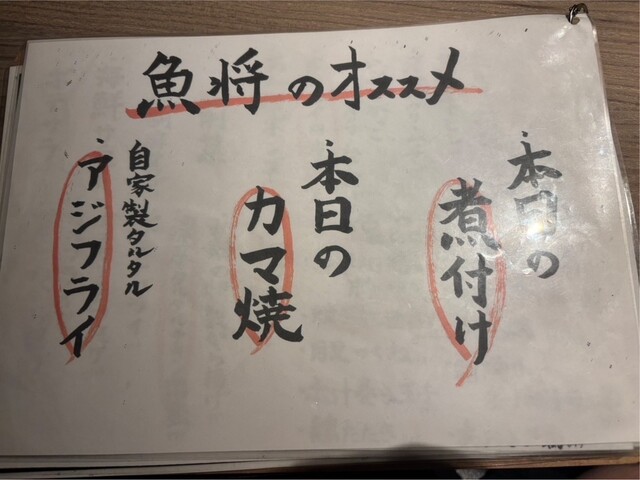 魚将のオススメ
・本日の
煮付け
・本日の
カマ焼
自家製タルタル
・アジフライ